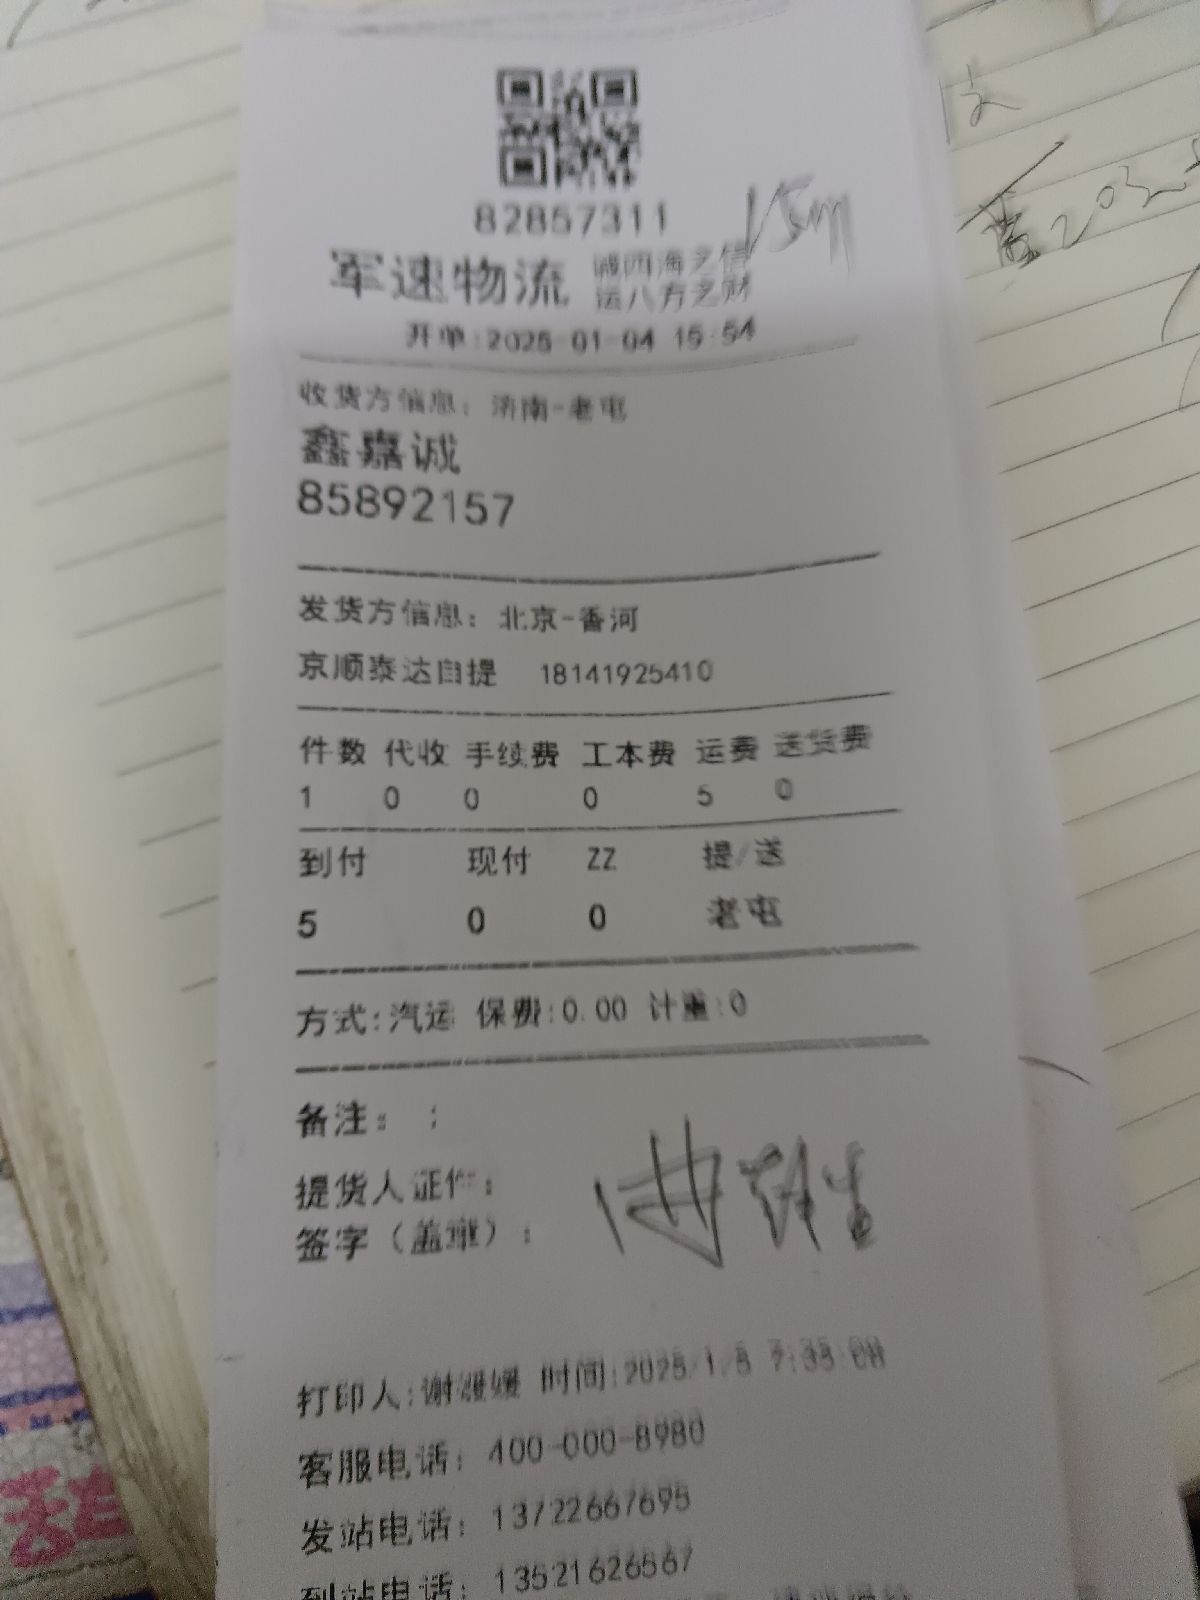 82857311
军速物流 诚四海之信
运八方之财
开单:2025-01-04 15:54
收货方信息: 济南-老屯
鑫嘉诚
85892157
发货方信息: 北京-香河
京顺泰达自提 18141925410
件数 代收 手续费 工本费 运费 送货费
1 0 0 0 5 0
到付 现付 ZZ 提/送
5 0 0 老屯
方式:汽运 保费:0.00 计重:0
备注: ;
提货人证件:
签字(盖章):
打印人:谢媛媛 时间:2025/1/5 7:35:08
客服电话: 400-000-8980
发站电话: 13722667695
到站电话: 13521626567